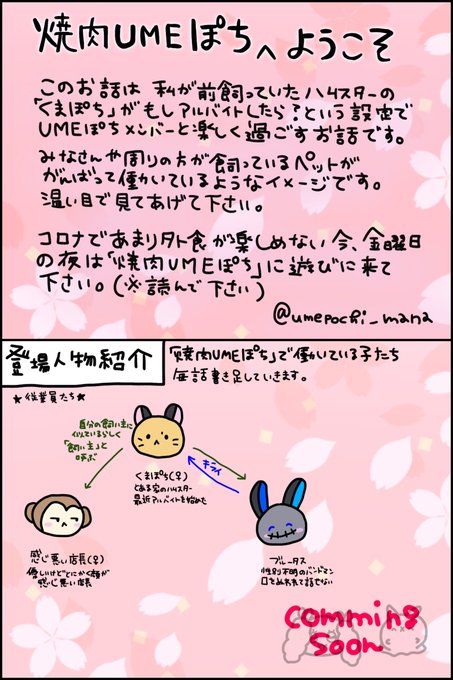 焼肉UMEぽちへようこそ
このお話は 私が前飼っていたハムスターの
「くまぽち」がもしアルバイトしたら？という設定で
UMEぽちメンバーと楽しく過ごすお話です。
みなさんや周りの方が飼っているペットが
がんばって働いているようなイメージです。
温い目で見てあげて下さい。
コロナであまり外食が楽しめない今、金曜日
の夜は「焼肉UMEぽち」に遊びに来て
下さい。(※読んで下さい)
@umepochi_mana
登場人物紹介
「焼肉UMEぽち」で働いている子たち
毎話書き足していきます。
★従業員たち★
自分の飼い主に
似ているらしく
「飼い主」と
呼ぶ
キライ
くまぽち(♀)
とある家のハムスター
最近アルバイトを始めた
感じ悪い店長(♀)
優しいけどとにかく顔が
感じ悪い店長
ブルータス
性別不明のバンドマン
口をぬわれてて話せない
comming
soon